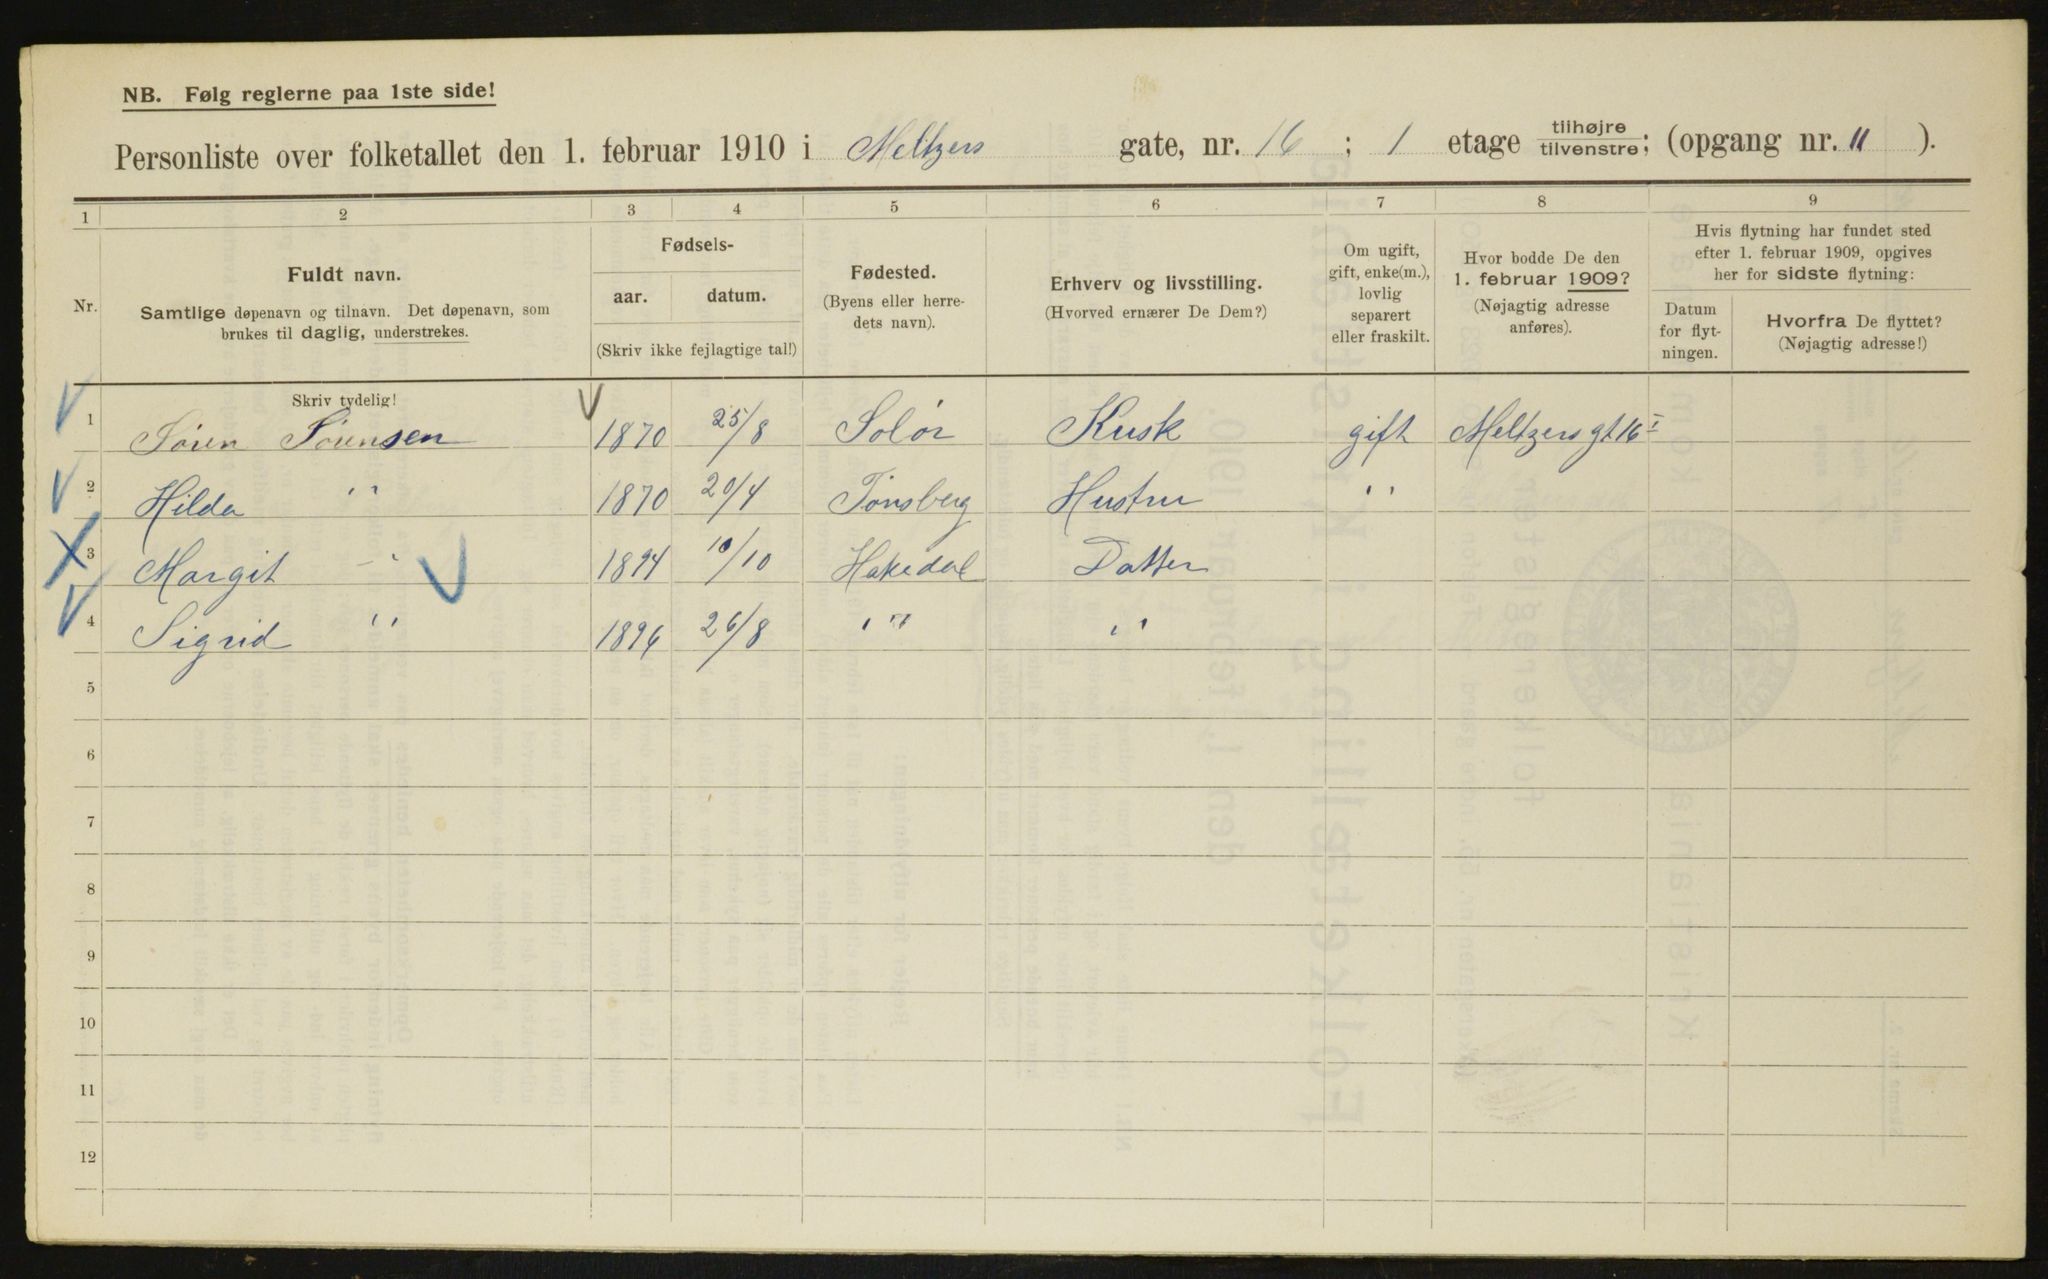 NB. Følg reglerne paa 1ste side!
Personliste over folketallet den 1. februar 1910 i Meltzers gate, nr. 16 ; 1 etage tilhøjre tilvenstre; (opgang nr. 11 ).
1 2 3 4 5 6 7 8 9
Nr.
Fuldt navn.
Samtlige døpenavn og tilnavn. Det døpenavn, som
brukes til daglig, understrekes.
Fødsels-
aar. datum.
(Skriv ikke fejlagtige tal!)
Fødested.
(Byens eller herre-
dets navn).
Erhverv og livsstilling.
(Hvorved ernærer De Dem?)
Om ugift,
gift, enke(m.),
lovlig
separert
eller fraskilt.
Hvor bodde De den
1. februar 1909?
(Nøjagtig adresse
anføres).
Hvis flytning har fundet sted
efter 1. februar 1909, opgives
her for sidste flytning:
Datum
for flyt-
ningen.
Hvorfra De flyttet?
(Nøjagtig adresse!)
Skriv tydelig!
1 Søren Sørensen 1870 25/8 Solør Kusk gift Meltzers gt 16 I
2 Hilda " 1870 20/4 Tønsberg Hustru "
3 Margit " 1894 10/10 Hakedal Datter
4 Sigrid " 1896 26/8 " "
5
6
7
8
9
10
11
12